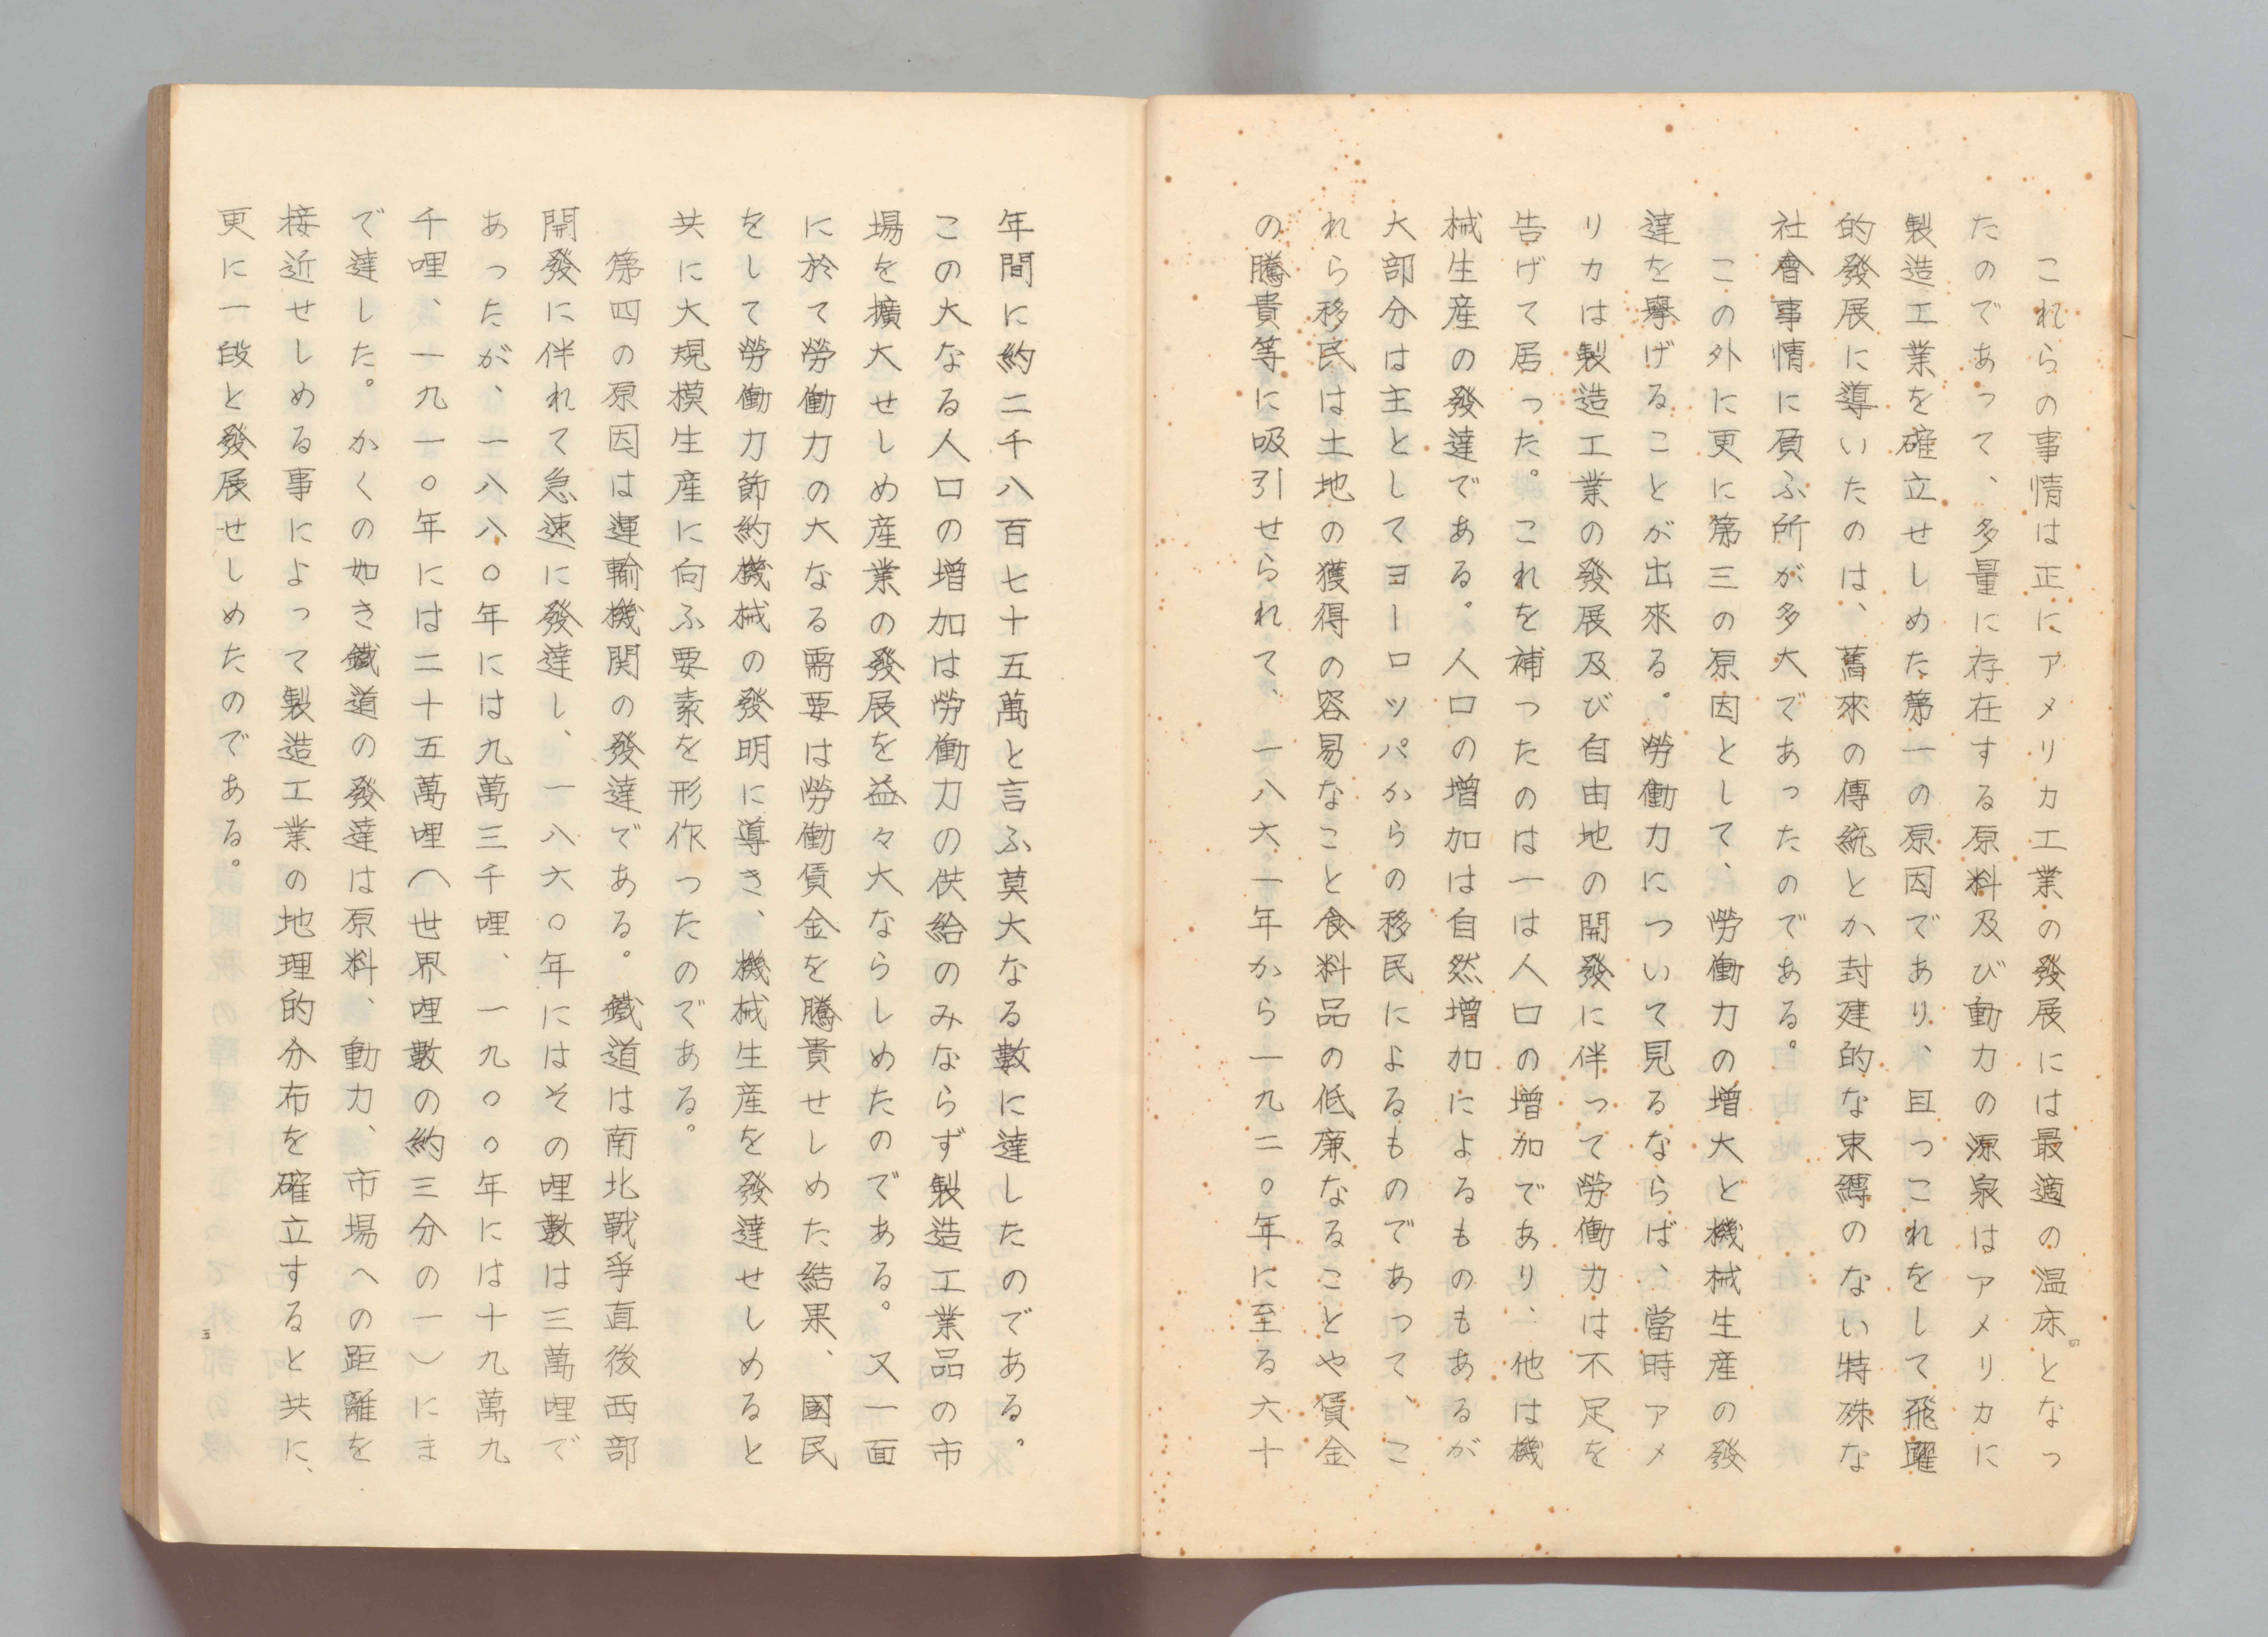 これらの事情は正にアメリカ工業の發展には最適の温床。となっ
たのであって、多量に存在する原料及び動力の源泉はアメリカに
製造工業を確立せしめた第一の原因であり、且つこれをして飛躍
的發展に導いたのは、舊來の傳統とか封建的な束縛のない特殊な
社會事情に負ふ所が多大であったのである。
この外に更に第三の原因として、勞働力の増大と機械生産の發
達を擧げることが出來る。勞働力について見るならば、當時アメ
リカは製造工業の發展及び自由地の開發に伴って勞働力は不足を
告げて居った。これを補ったのは一は人口の増加であり、他は機
械生産の發達である。人口の増加は自然増加によるものもあるが
大部分は主としてヨーロッパからの移民によるものであって、こ
れら移民は土地の獲得の容易なこと食料品の低廉なることや賃金
の騰貴等に吸引せられて、一八六一年から一九二〇年に至る六十
年間に約二千八百七十五萬と言ふ莫大なる數に達したのである。
この大なる人口の増加は勞働力の供給のみならず製造工業品の市
場を擴大せしめ産業の發展を益々大ならしめたのである。又一面
に於て勞働力の大なる需要は勞働賃金を騰貴せしめた結果、國民
をして勞働力節約機械の發明に導き、機械生産を發達せしめると
共に大規模生産に向ふ要素を形作ったのである。
第四の原因は運輸機関の發達である。鐵道は南北戰爭直後西部
開發に伴れて急速に發達し、一八六〇年にはその哩數は三萬哩で
あったが、一八八〇年には九萬三千哩、一九〇〇年には十九萬九
千哩、一九一〇年には二十五萬哩（世界哩數の約三分の一）にま
で達した。かくの如き鐵道の發達は原料、動力、市場への距離を
接近せしめる事によって製造工業の地理的分布を確立すると共に、
更に一段と發展せしめたのである。
五